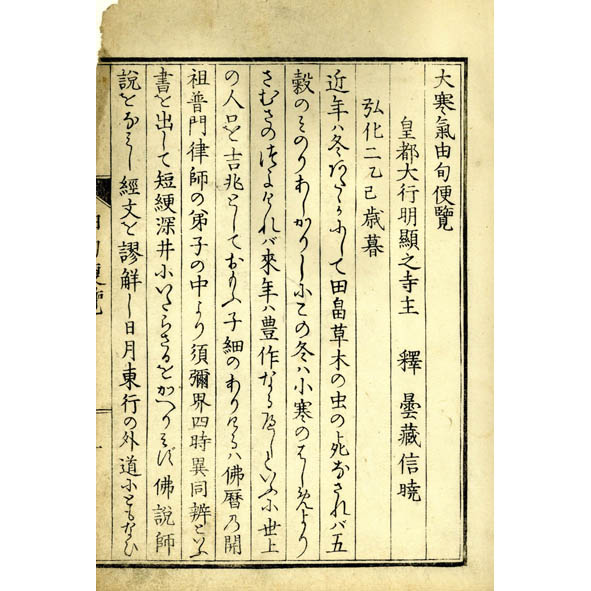 大寒氣由旬便覽
皇都大行明顯之寺主　釋　曇藏信曉
弘化二乙巳歳暮
近年ハ冬あたゝかにして田畠草木の虫の死なされバ五
穀のみのりあしかりしにこの冬ハ小寒のはしめより
さむさのはけしけれバ來年ハ豊作なるべしといふに世上
の人口を吉兆としておもふ子細のありけるハ佛暦乃開
祖普門律師の弟子の中より須彌界四時異同辨といふ
書を出して短綆深井にいたらさるをかへりみず佛說師
說をなみし經文を謬解し日月東行の外道にともなひ
由旬便覽